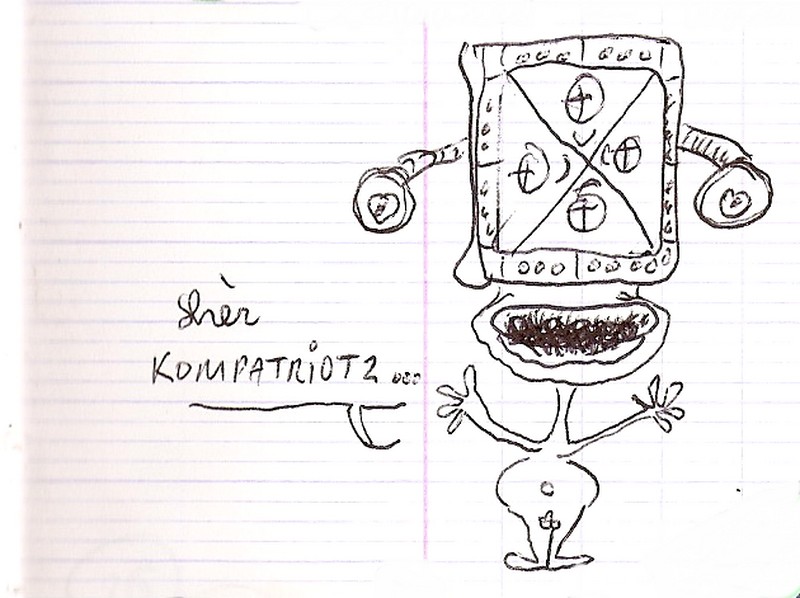 shèr
KOMPATRiOT2 ...